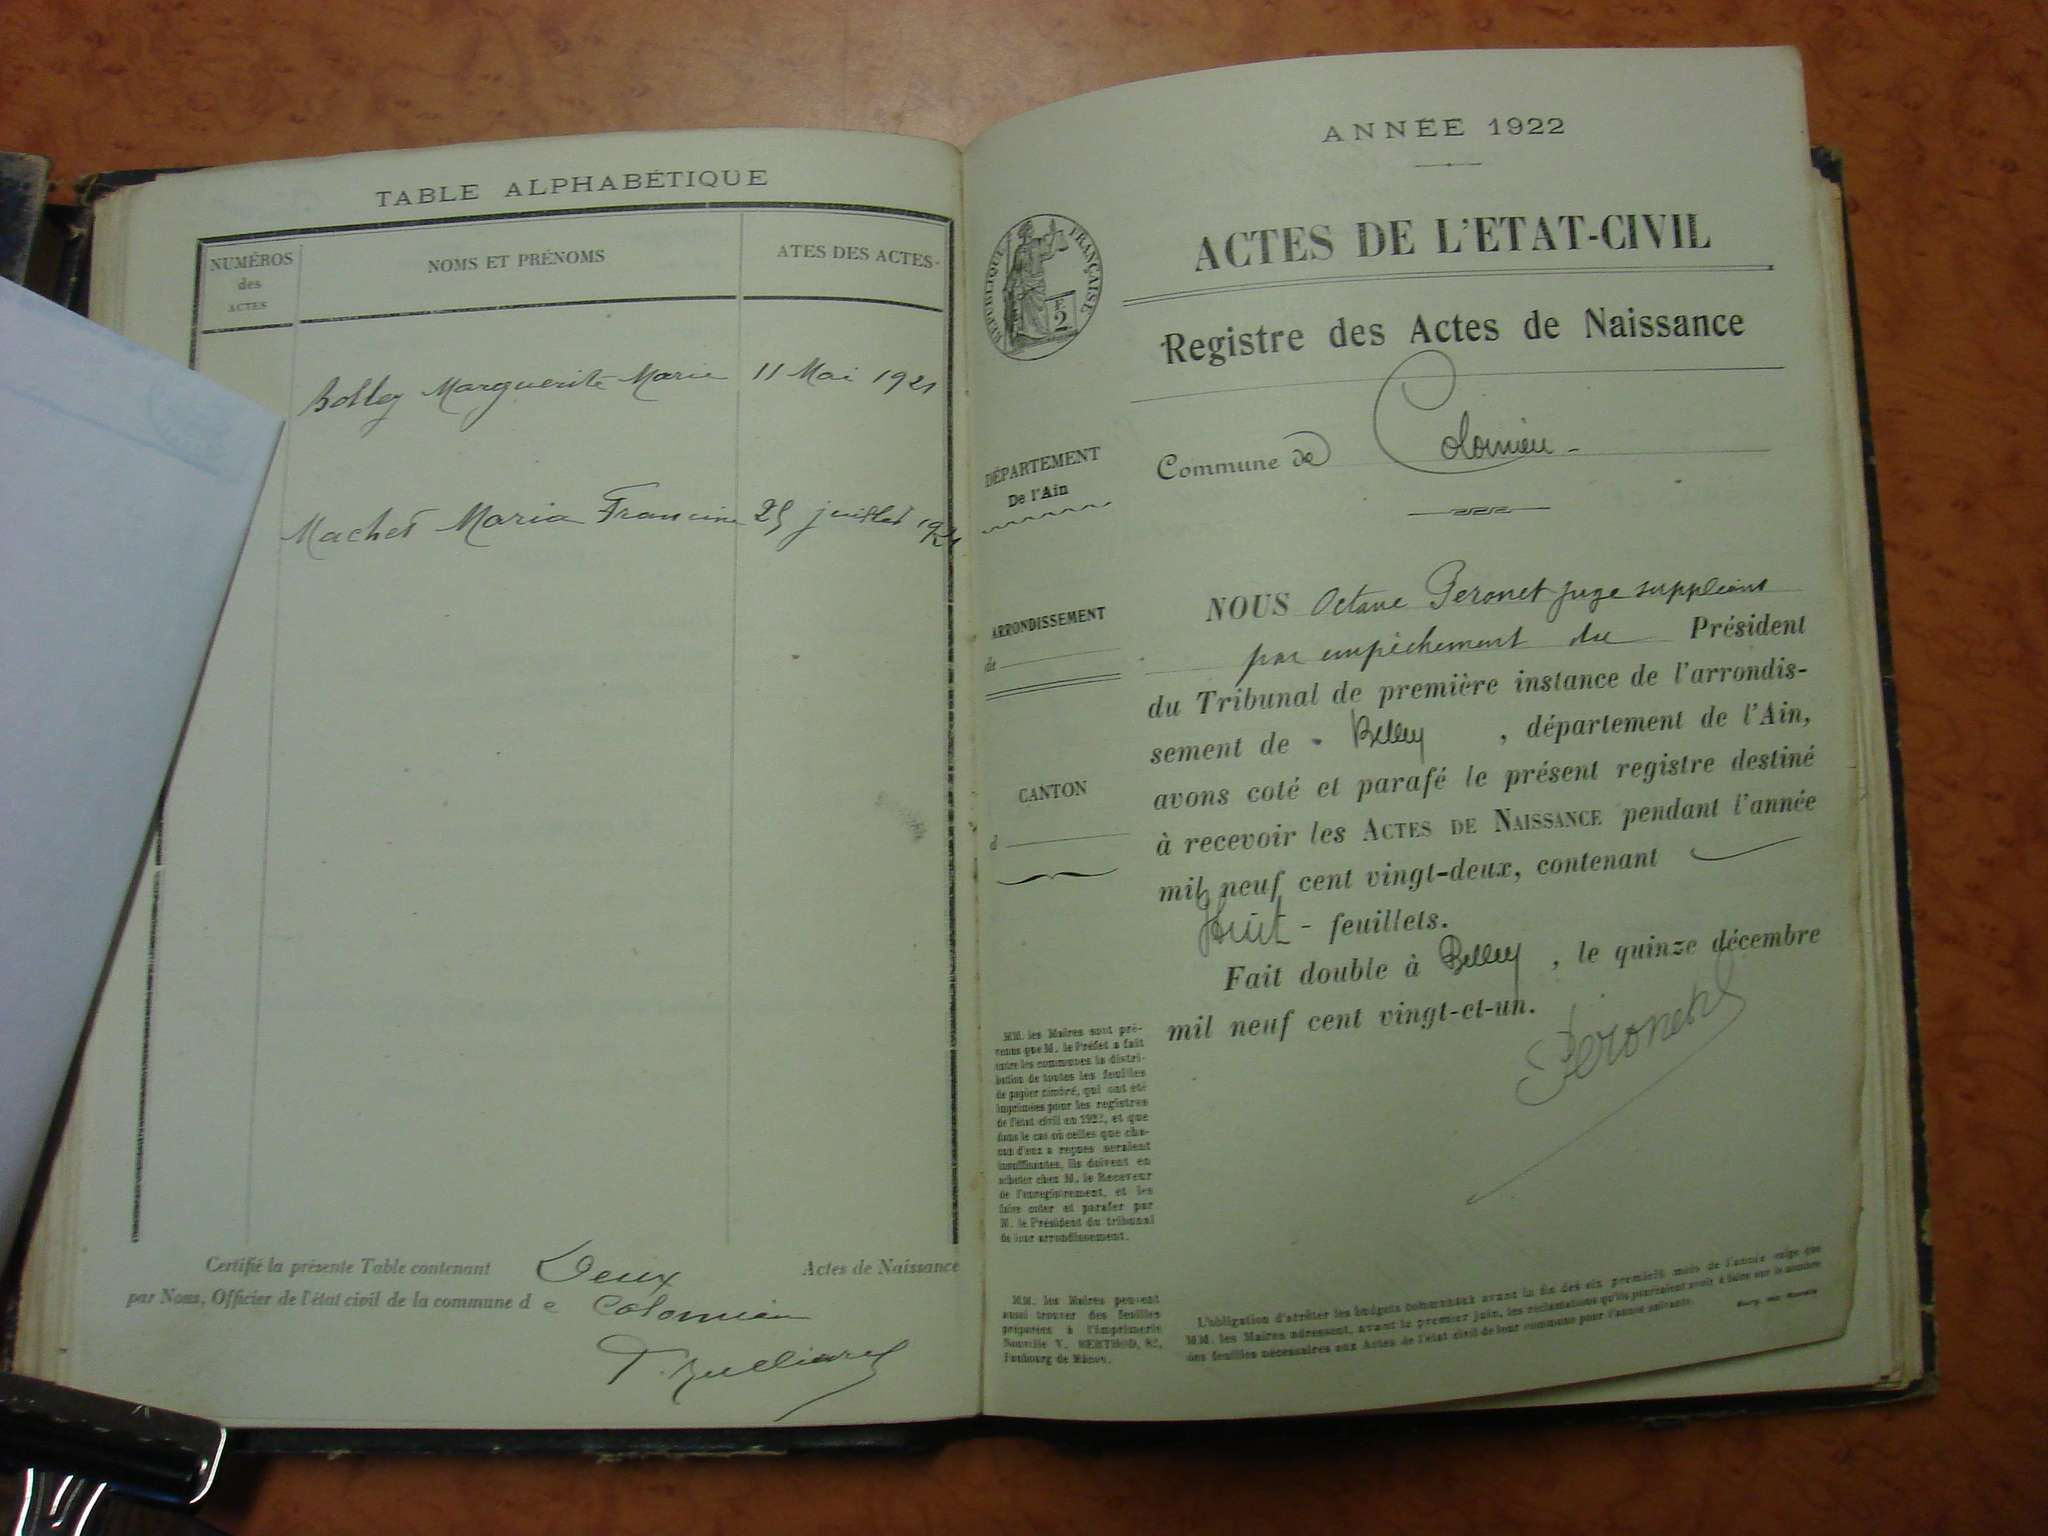 TABLE ALPHABÉTIQUE
NUMÉROS
des
ACTES
NOMS ET PRÉNOMS
ATES DES ACTES
Marguerite Marie 11 Mai 1921
Machet Maria Francine 25 juillet 1921
Certifié la présente Table contenant Deux Actes de Naissance
par Nous, Officier de l'état civil de la commune d e Colomieu
ANNÉE 1922
RÉPUBLIQUE FRANÇAISE
2
ACTES DE L'ETAT-CIVIL
Registre des Actes de Naissance
DÉPARTEMENT
De l'Ain
Commune de Colomieu
ARRONDISSEMENT
de
CANTON
d
NOUS Octave Peronet juge suppléant
par empêchement du Président
du Tribunal de première instance de l'arrondis-
sement de Belley , département de l'Ain,
avons coté et parafé le présent registre destiné
à recevoir les ACTES DE NAISSANCE pendant l'année
mil neuf cent vingt-deux, contenant
Huit - feuillets.
Fait double à Belley , le quinze décembre
mil neuf cent vingt-et-un.
Peronet
MM. les Maires sont pré-
venus que M. le Préfet a fait
entre les communes la distri-
bution de toutes les feuilles
de papier timbré, qui ont été
imprimées pour les registres
de l'état civil en 1922, et que
dans le cas où celles que cha-
cun d'eux a reçues seraient
insuffisantes, ils doivent en
acheter chez M. le Receveur
de l'enregistrement, et les
faire coter et parafer par
M. le Président du tribunal
de leur arrondissement.
MM. les Maires peuvent
aussi trouver des feuilles
préparées à l'Imprimerie
Nouvelle V. BERTHOD, 82,
Faubourg de Mâcon.
L'obligation d'arrêter les budgets communaux avant la fin des six premiers mois de l'année exige que
MM. les Maires adressent, avant le premier juin, les réclamations qu'ils pourraient avoir à faire sur le nombre
des feuilles nécessaires aux Actes de l'état civil de leur commune pour l'année suivante.